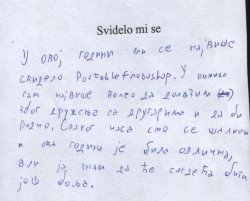 Svidelo mi se
У овој години ми се највише
свидело
сам највише волео да долазим
због дружења са другарима и да би
радио. Сваког часа смо се шалили
и ова година је била одлична,
али ја знам да ће следећа бити
још боља.